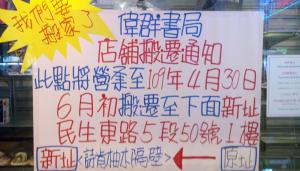 我們要
搬家了
偉群書局
店舖搬遷通知
此點將營業至109年4月30日
6月初搬遷至下面新址
民生東路5段50號1樓
新址<詩肯柚木隔壁>
原址